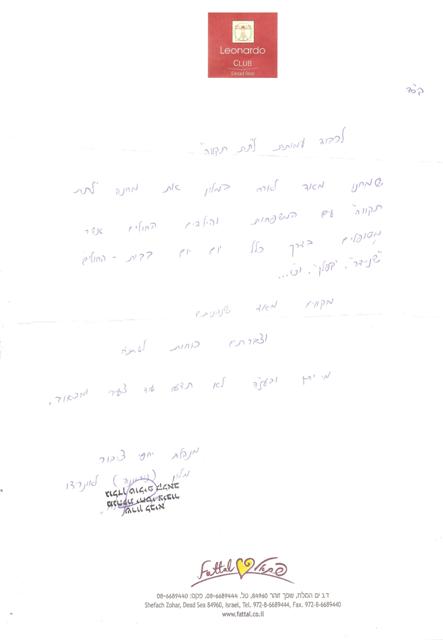 Leonardo
CLUB
Dead Sea
בס"ד
לכבוד עמותת "לתת תקווה"
שמחנו מאוד לארח במלון את מחנה "לתת
תקווה" עם המשפחות והילדים החולים אשר
מטופלים בדרך כלל יום יום בבית - החולים
"שניידר",
מקווים מאוד שנהניתם
וצברתם כוחות
לא תדעו עוד צער
מנהלת יחסי ציבור
מלון לאונרדו
Fattal פתאל
ד.נ ים המלח, שפך זוהר 84960, טל. 08-6689444, פקס: 08-6689440
Shefach Zohar, Dead Sea 84960, Israel, Tel. 972-8-6689444, Fax. 972-8-6689440
www.fattal.co.il